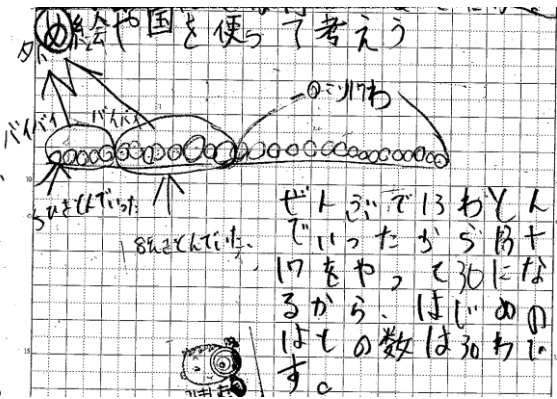 め 絵や図を使って考えう
バイバイ
バイバイ
のこり17わ
5ひきとんでいった
8ひきとんでいった
ぜんぶで13わとん
でいったから13+
17をやって30にな
るから、はじめの
はとの数は30わで
す。